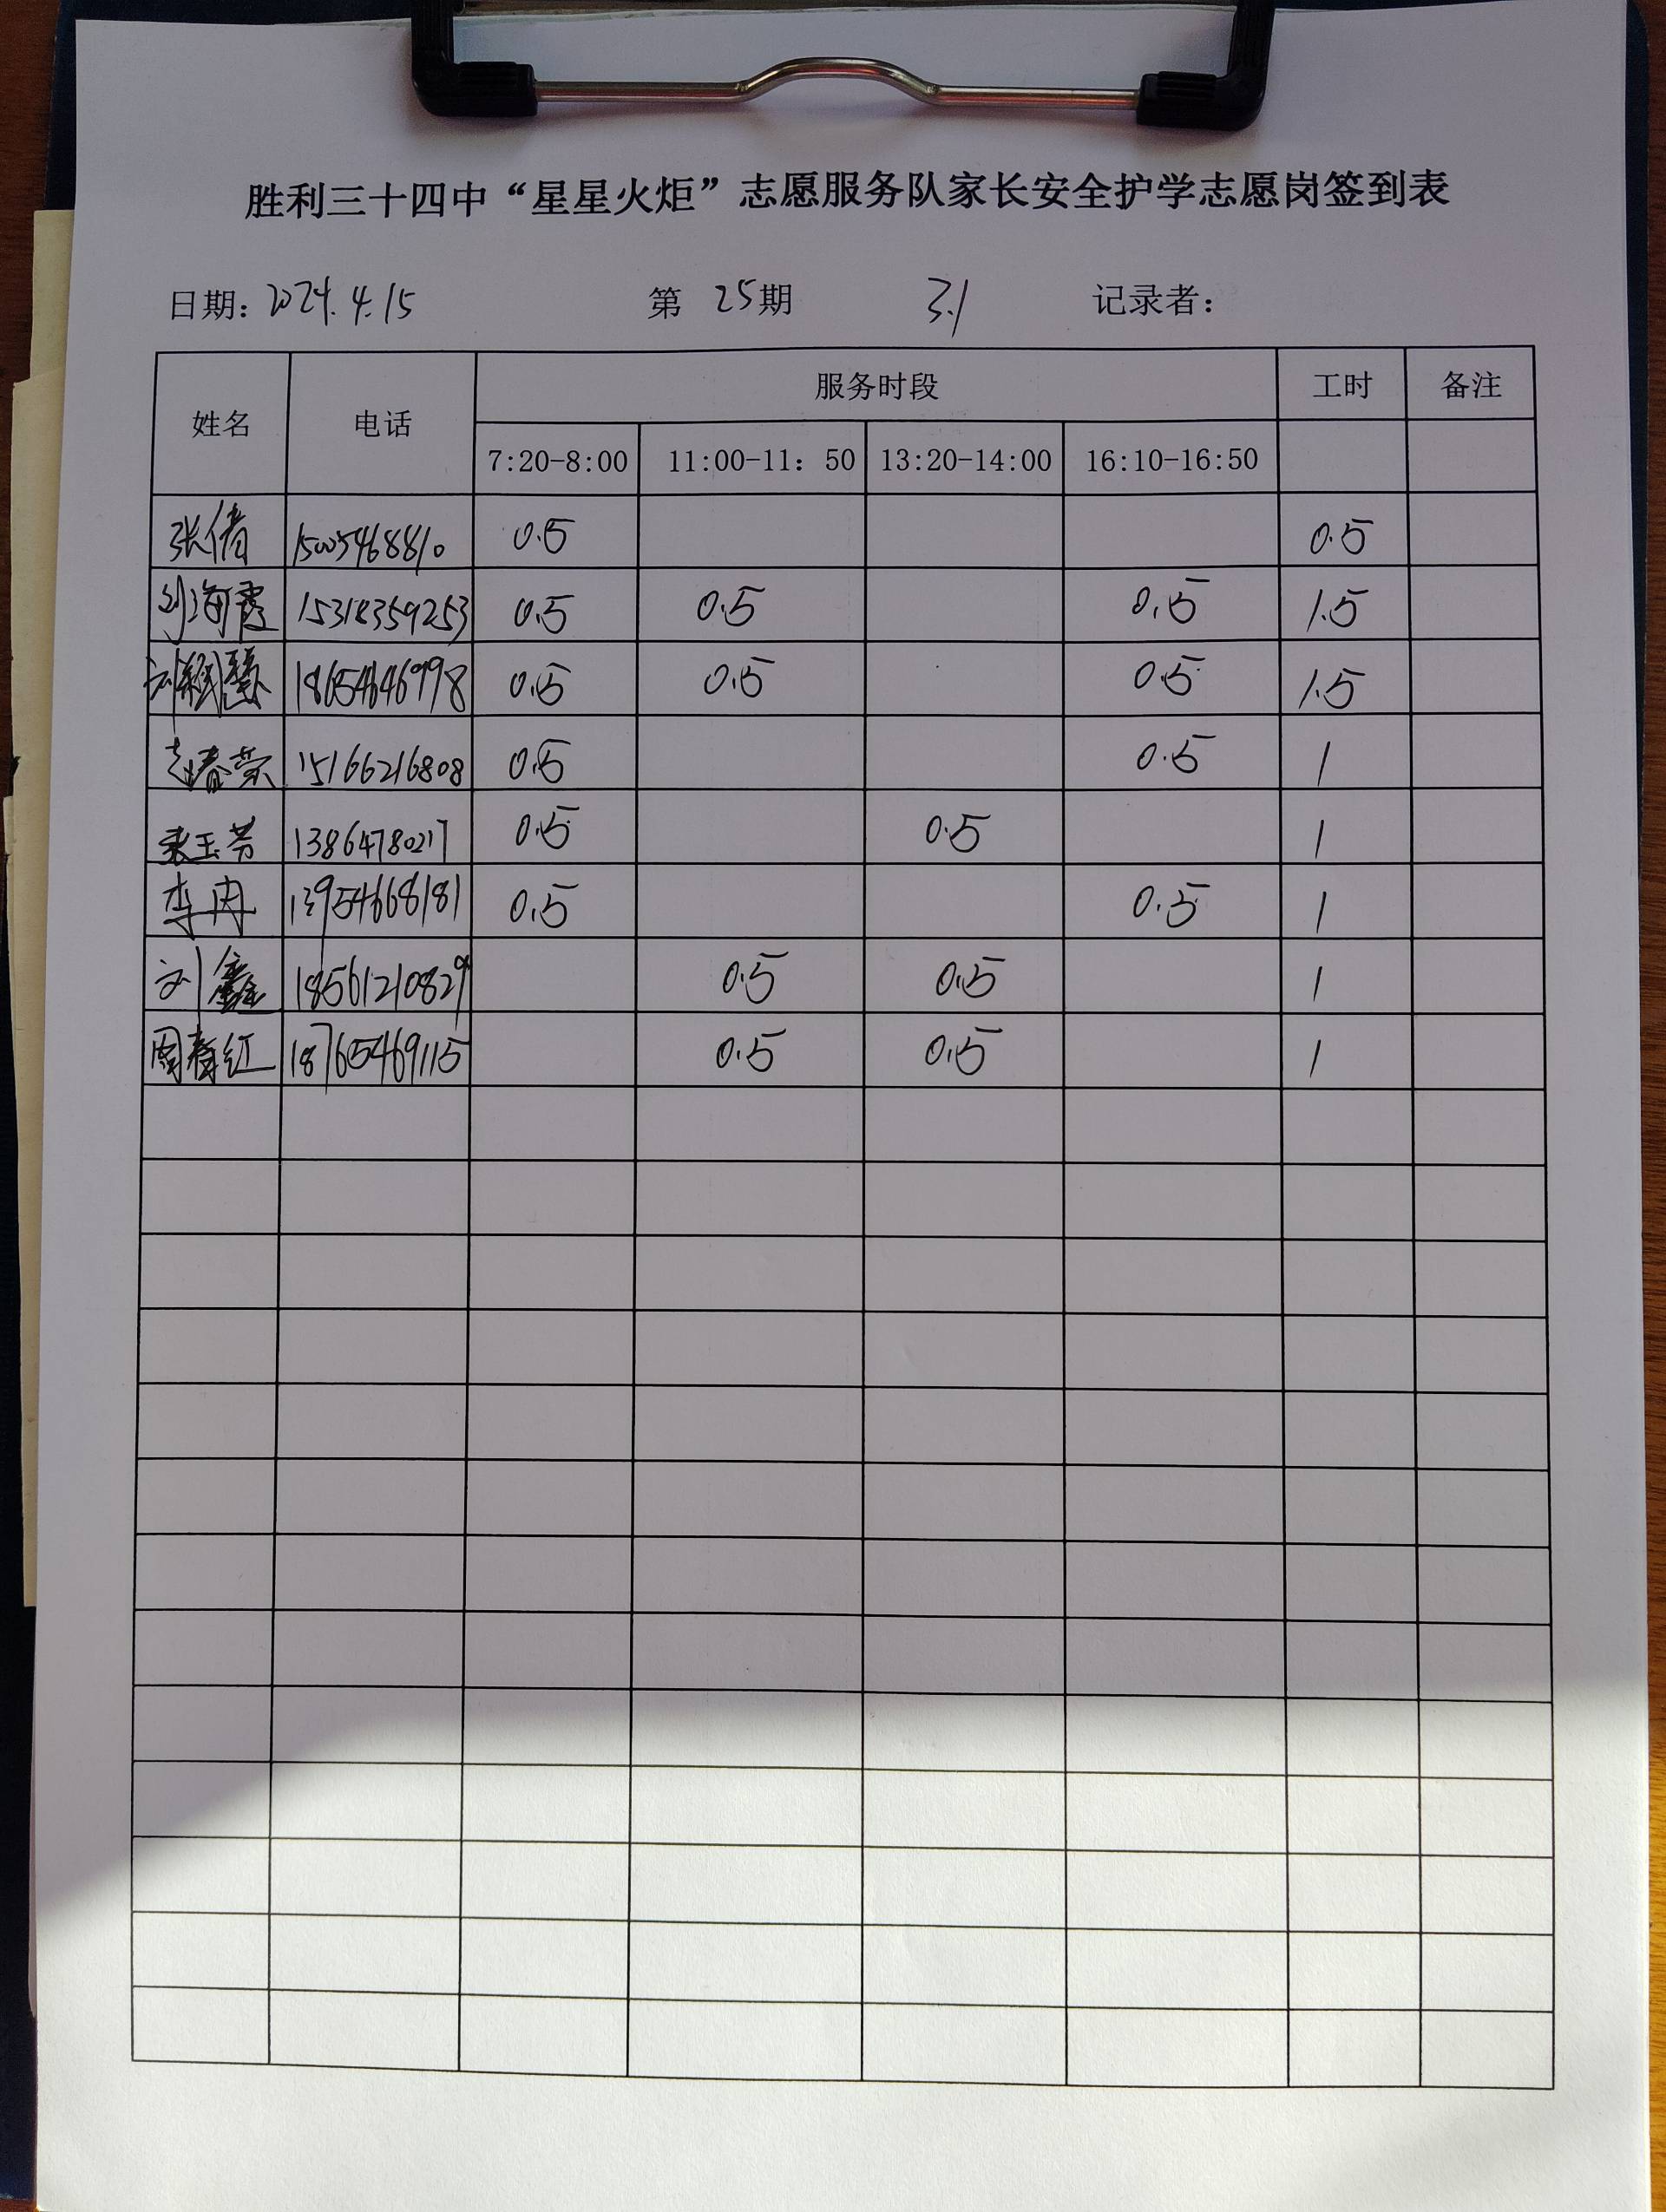 胜利三十四中“星星火炬”志愿服务队家长安全护学志愿岗签到表
日期: 2024.4.15 第 25期 3.1 记录者:
姓名 电话 服务时段 工时 备注
7:20-8:00 11:00-11：50 13:20-14:00 16:10-16:50
张倩 15005468810 0.5 0.5
刘海霞 15318359253 0.5 0.5 0.5 1.5
刘 慧 18654646998 0.5 0.5 0.5 1.5
赵春荣 15166216808 0.5 0.5 1
张玉芳 13864780217 0.5 0.5 1
李冉 13954668181 0.5 0.5 1
刘鑫 18561210829 0.5 0.5 1
周春红 18765469115 0.5 0.5 1